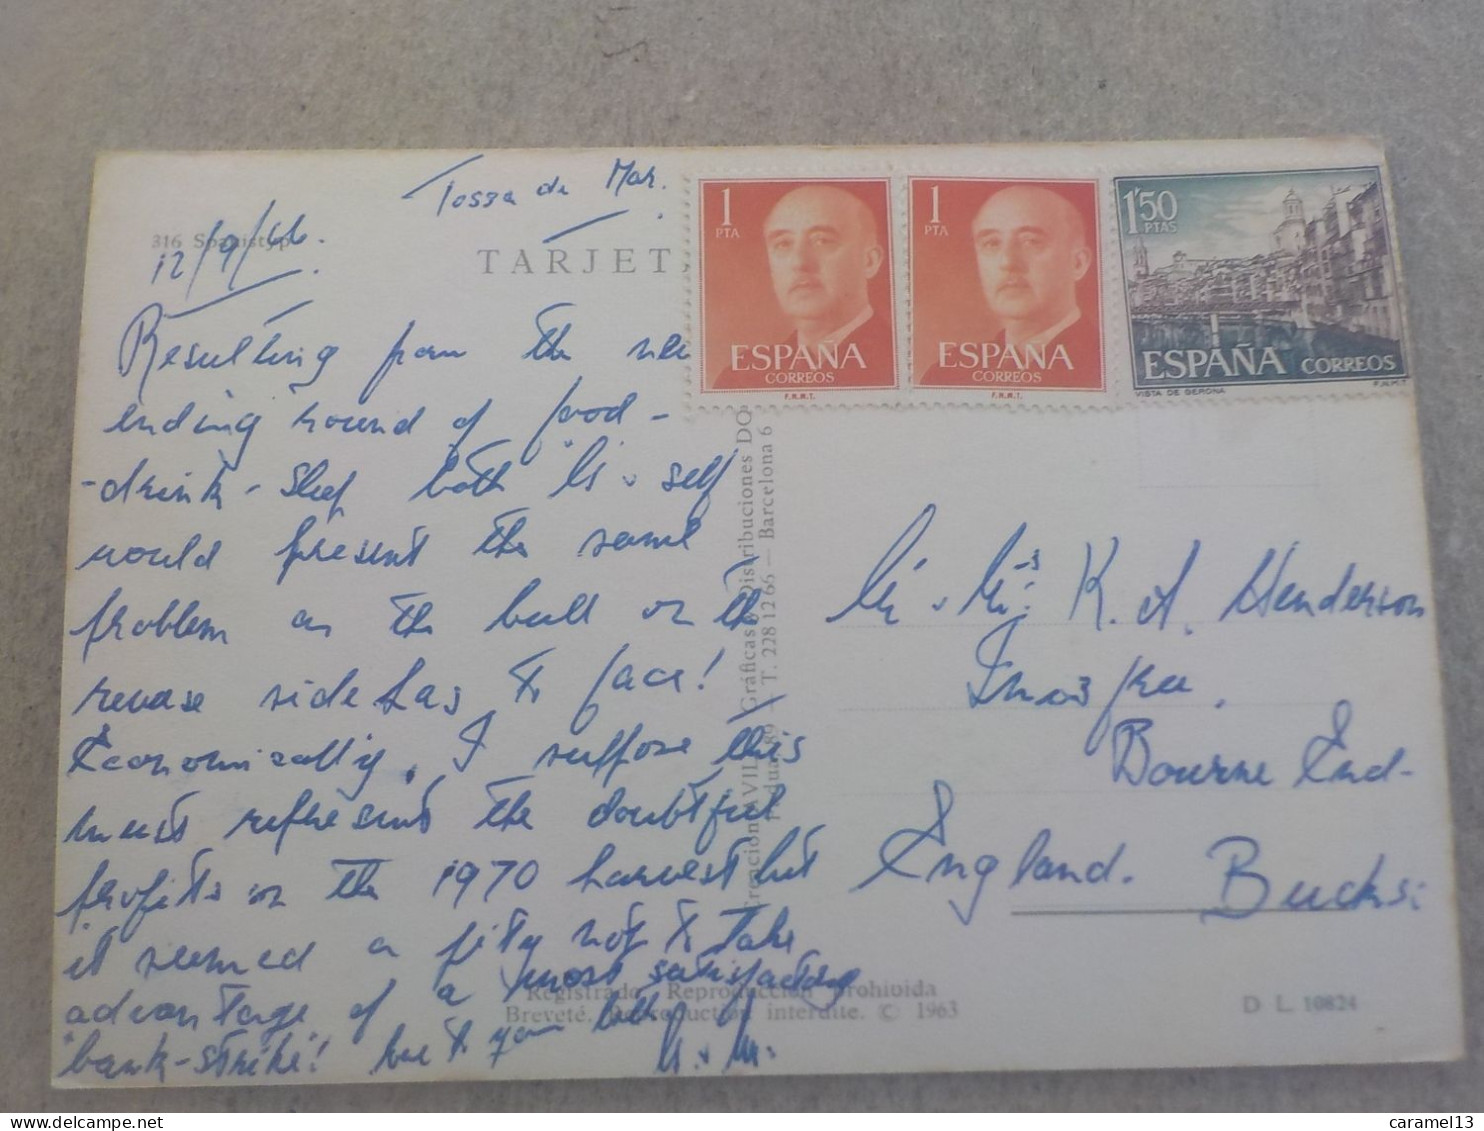 Tossa de Mar.
316 Spanistyp
12/9/66.
TARJET
Resulting from the
ending round of food-
-drink-sleep both & self
would present the same
problem as the bull on the
reverse side has to face!
Economically, I suppose this
must represent the doubtful
profits on the 1970 harvest but
it seemed a pity not to take
advantage of a most satisfactory
bank-strike! to you both
1 PTA
ESPAÑA
CORREOS
F.N.M.T.
1 PTA
ESPAÑA
CORREOS
F.N.M.T.
1'50 PTAS
ESPAÑA CORREOS
VISTA DE GERONA F.N.M.T.
Gráficas Distribuciones DO
T. 228 12 66 — Barcelona 6
K. A. Henderson
Bourne End-
Bucks:
England.
Registrado. Reproducción Prohibida
Breveté. Reproduction interdite. © 1963
D L. 10824
caramel13